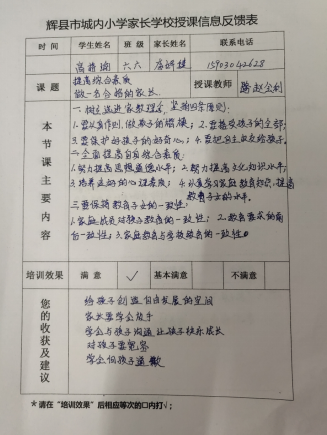 辉县市城内小学家长学校授课信息反馈表
时间 学生姓名 班级 家长姓名 联系电话
六六 15903042628
课题 提高综合素质 做一名合格的家长 授课教师
本节课主要内容
一、树立送进家教理念，坚持四条原则：
1.要以身作则，做孩子的楷模；2.要接受孩子的全部；
3.要保护好孩子的好奇心；4.要把自主权给孩子。
二、全面提高自身综合素质：
1.努力提高思想道德水平；2.努力提高文化知识水平；
3.培养良好的心理素质；4.认真学习家庭教育知识，提高
教育子女的水平。
三、要保持教育子女的一致性：
1.家庭成员对孩子教育的一致性；2.教育要求的前
后一致性；3.家庭教育与学校教育的一致性。
培训效果 满意 ✓ 基本满意 不满意
您的收获及建议
给孩子创造自由发展的空间
家长要学会放手
学会与孩子沟通让孩子快乐成长
对孩子要宽容
学会向孩子道歉
＊请在“培训效果”后相应等次的口内打√；